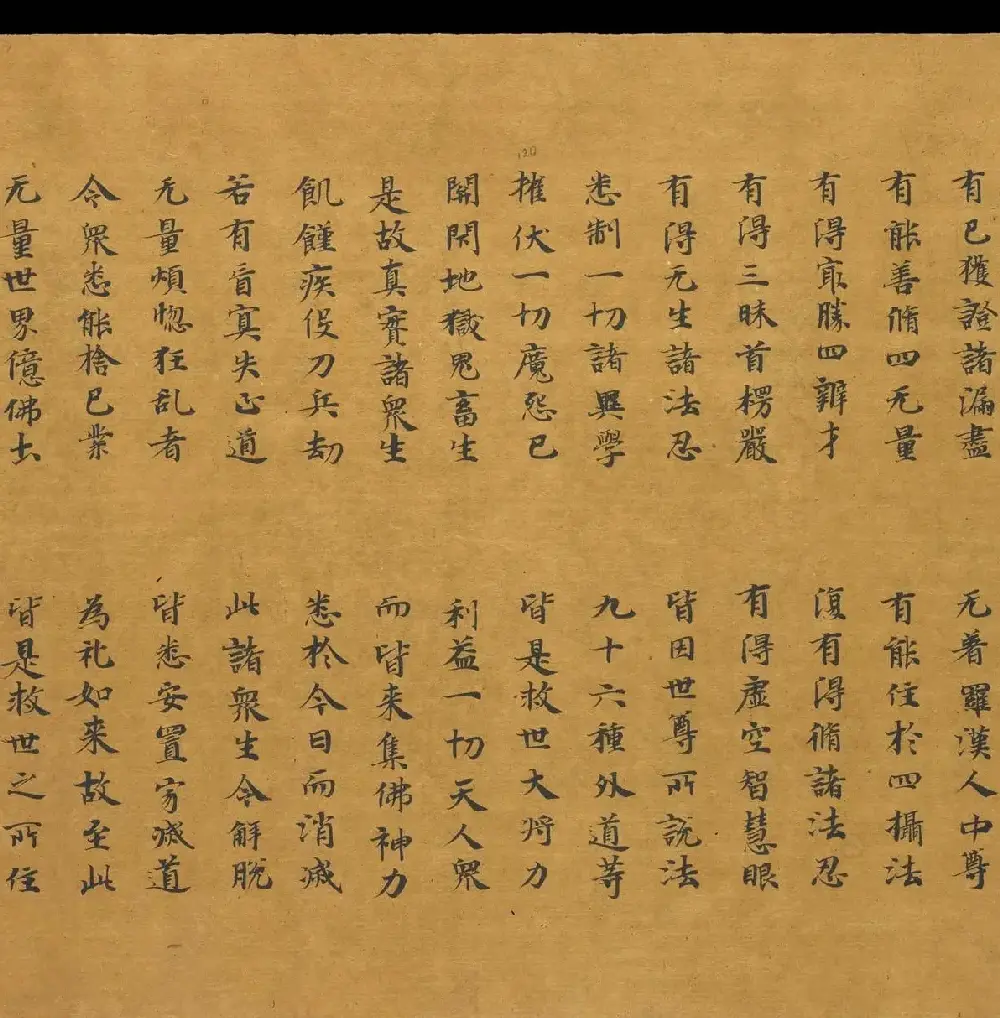 有已獲證諸漏盡　无著羅漢人中尊
有能善脩四无量　有能住於四攝法
有得冣勝四辯才　復有得脩諸法忍
有得三昧首楞嚴　有得虛空智慧眼
有得无生諸法忍　皆因世尊所說法
悉制一切諸異學　九十六種外道等
120
摧伏一切魔怨已　皆是救世大將力
開閇地獄鬼畜生　利益一切天人眾
是故真實諸眾生　而皆来集佛神力
飢饉疾伇刀兵劫　悉於今日而消滅
若有盲冥失正道　此諸眾生令解脫
无量煩惚狂乱者　皆悉安置滅道
令眾悉能捨已業　為礼如来故至此
无量世界億佛土　皆是救世之所住